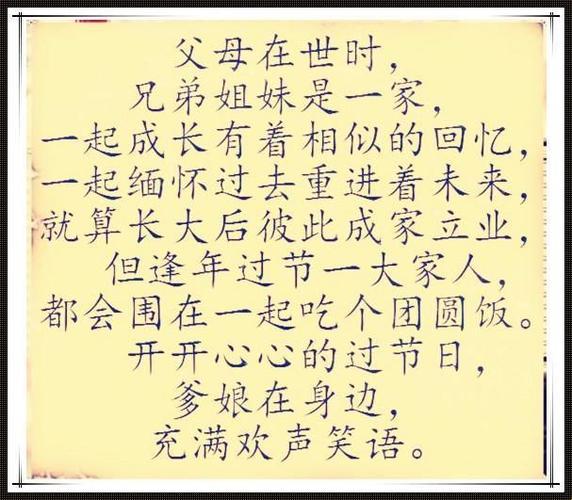 父母在世时，
兄弟姐妹是一家，
一起成长有着相似的回忆，
一起缅怀过去重进着未来，
就算长大后彼此成家立业，
但逢年过节一大家人，
都会围在一起吃个团圆饭。
开开心心的过节日，
爹娘在身边，
充满欢声笑语。